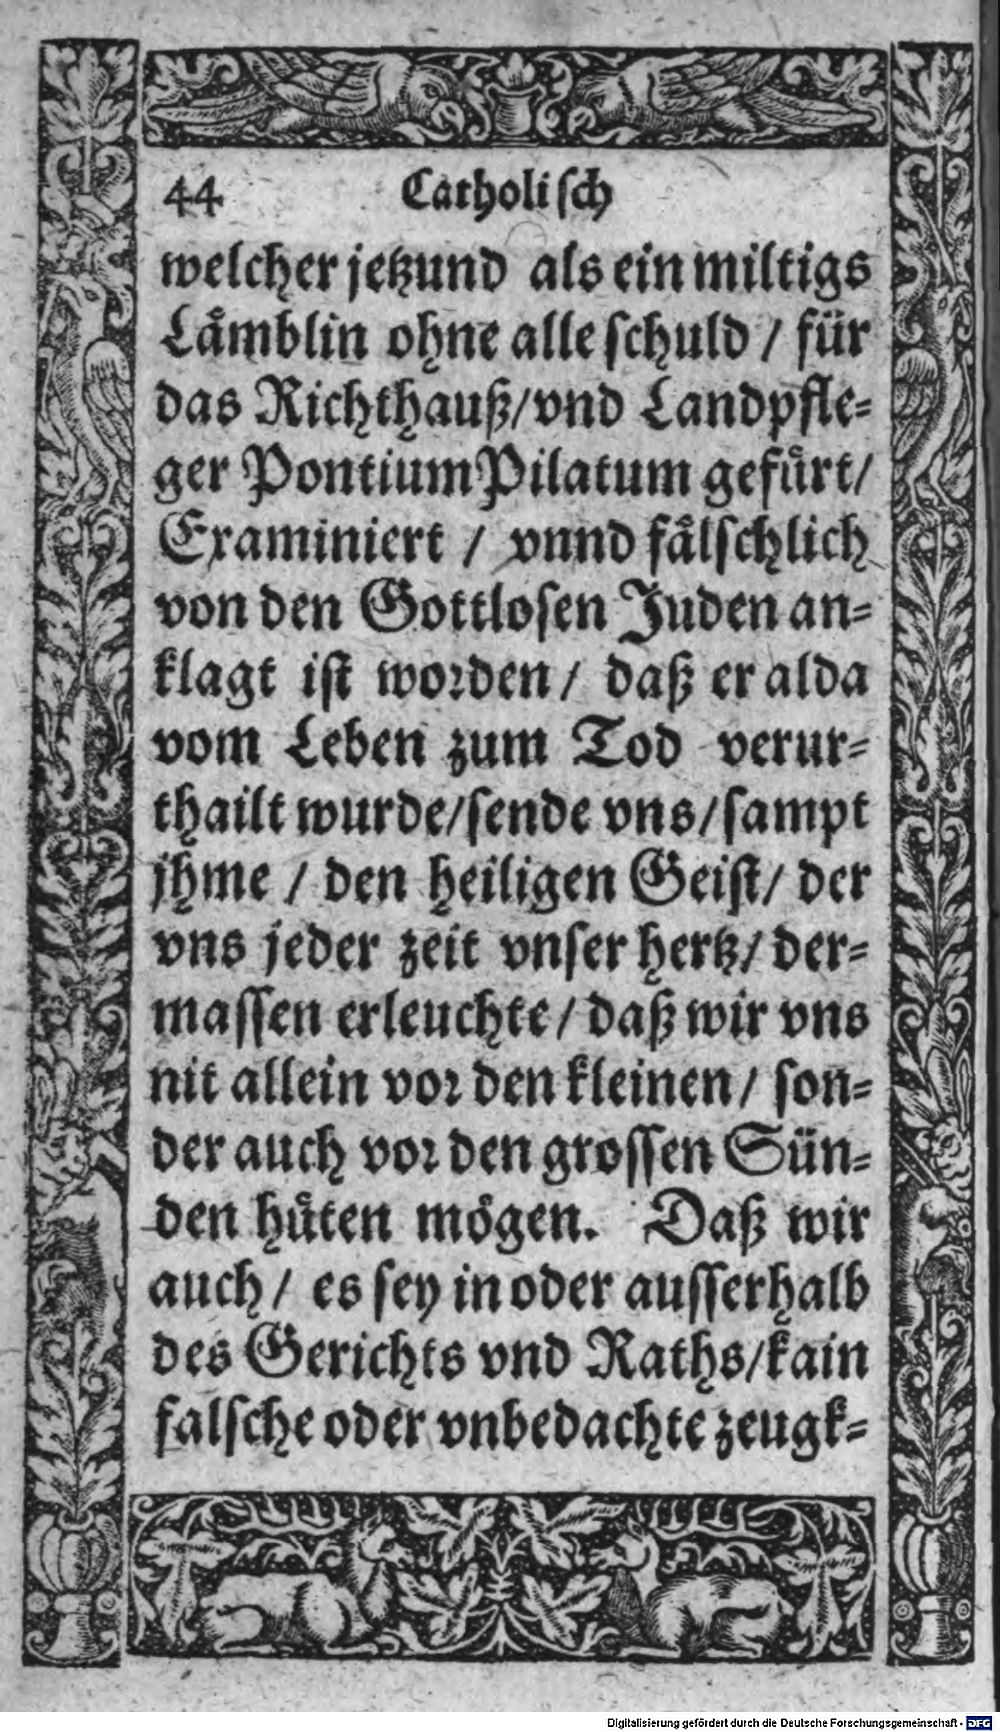 44 Catholisch
welcher jetzund als ein miltigs
Laͤmblin ohne alle schuld / für
das Richthauß/vnd Landpfle-
ger Pontium Pilatum gefuͤrt/
Examiniert / vnnd faͤlschlich
von den Gottlosen Juden an-
klagt ist worden / daß er alda
vom Leben zum Tod verur-
thailt wurde/sende vns/sampt
jhme / den heiligen Geist/ der
vns jeder zeit vnser hertz/ der-
massen erleuchte / daß wir vns
nit allein vor den kleinen / son-
der auch vor den grossen Sün-
den huͤten moͤgen. Daß wir
auch / es sey in oder ausserhalb
des Gerichts vnd Raths/kain
falsche oder vnbedachte zeugk-
Digitalisierung gefördert durch die Deutsche Forschungsgemeinschaft - DFG